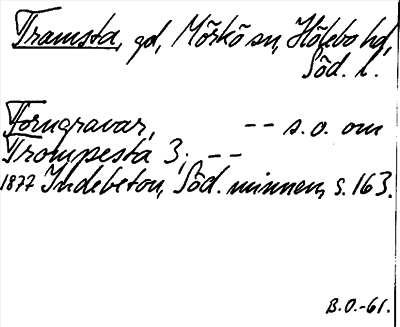 Tramsta, gd, Mörkö sn, Hölebo hd,
Söd. l.
Forngravar, -- s.o. om
Trompesta 3; --
1877 Indebetou, Söd. minnen, s. 163.
B.O.-61.